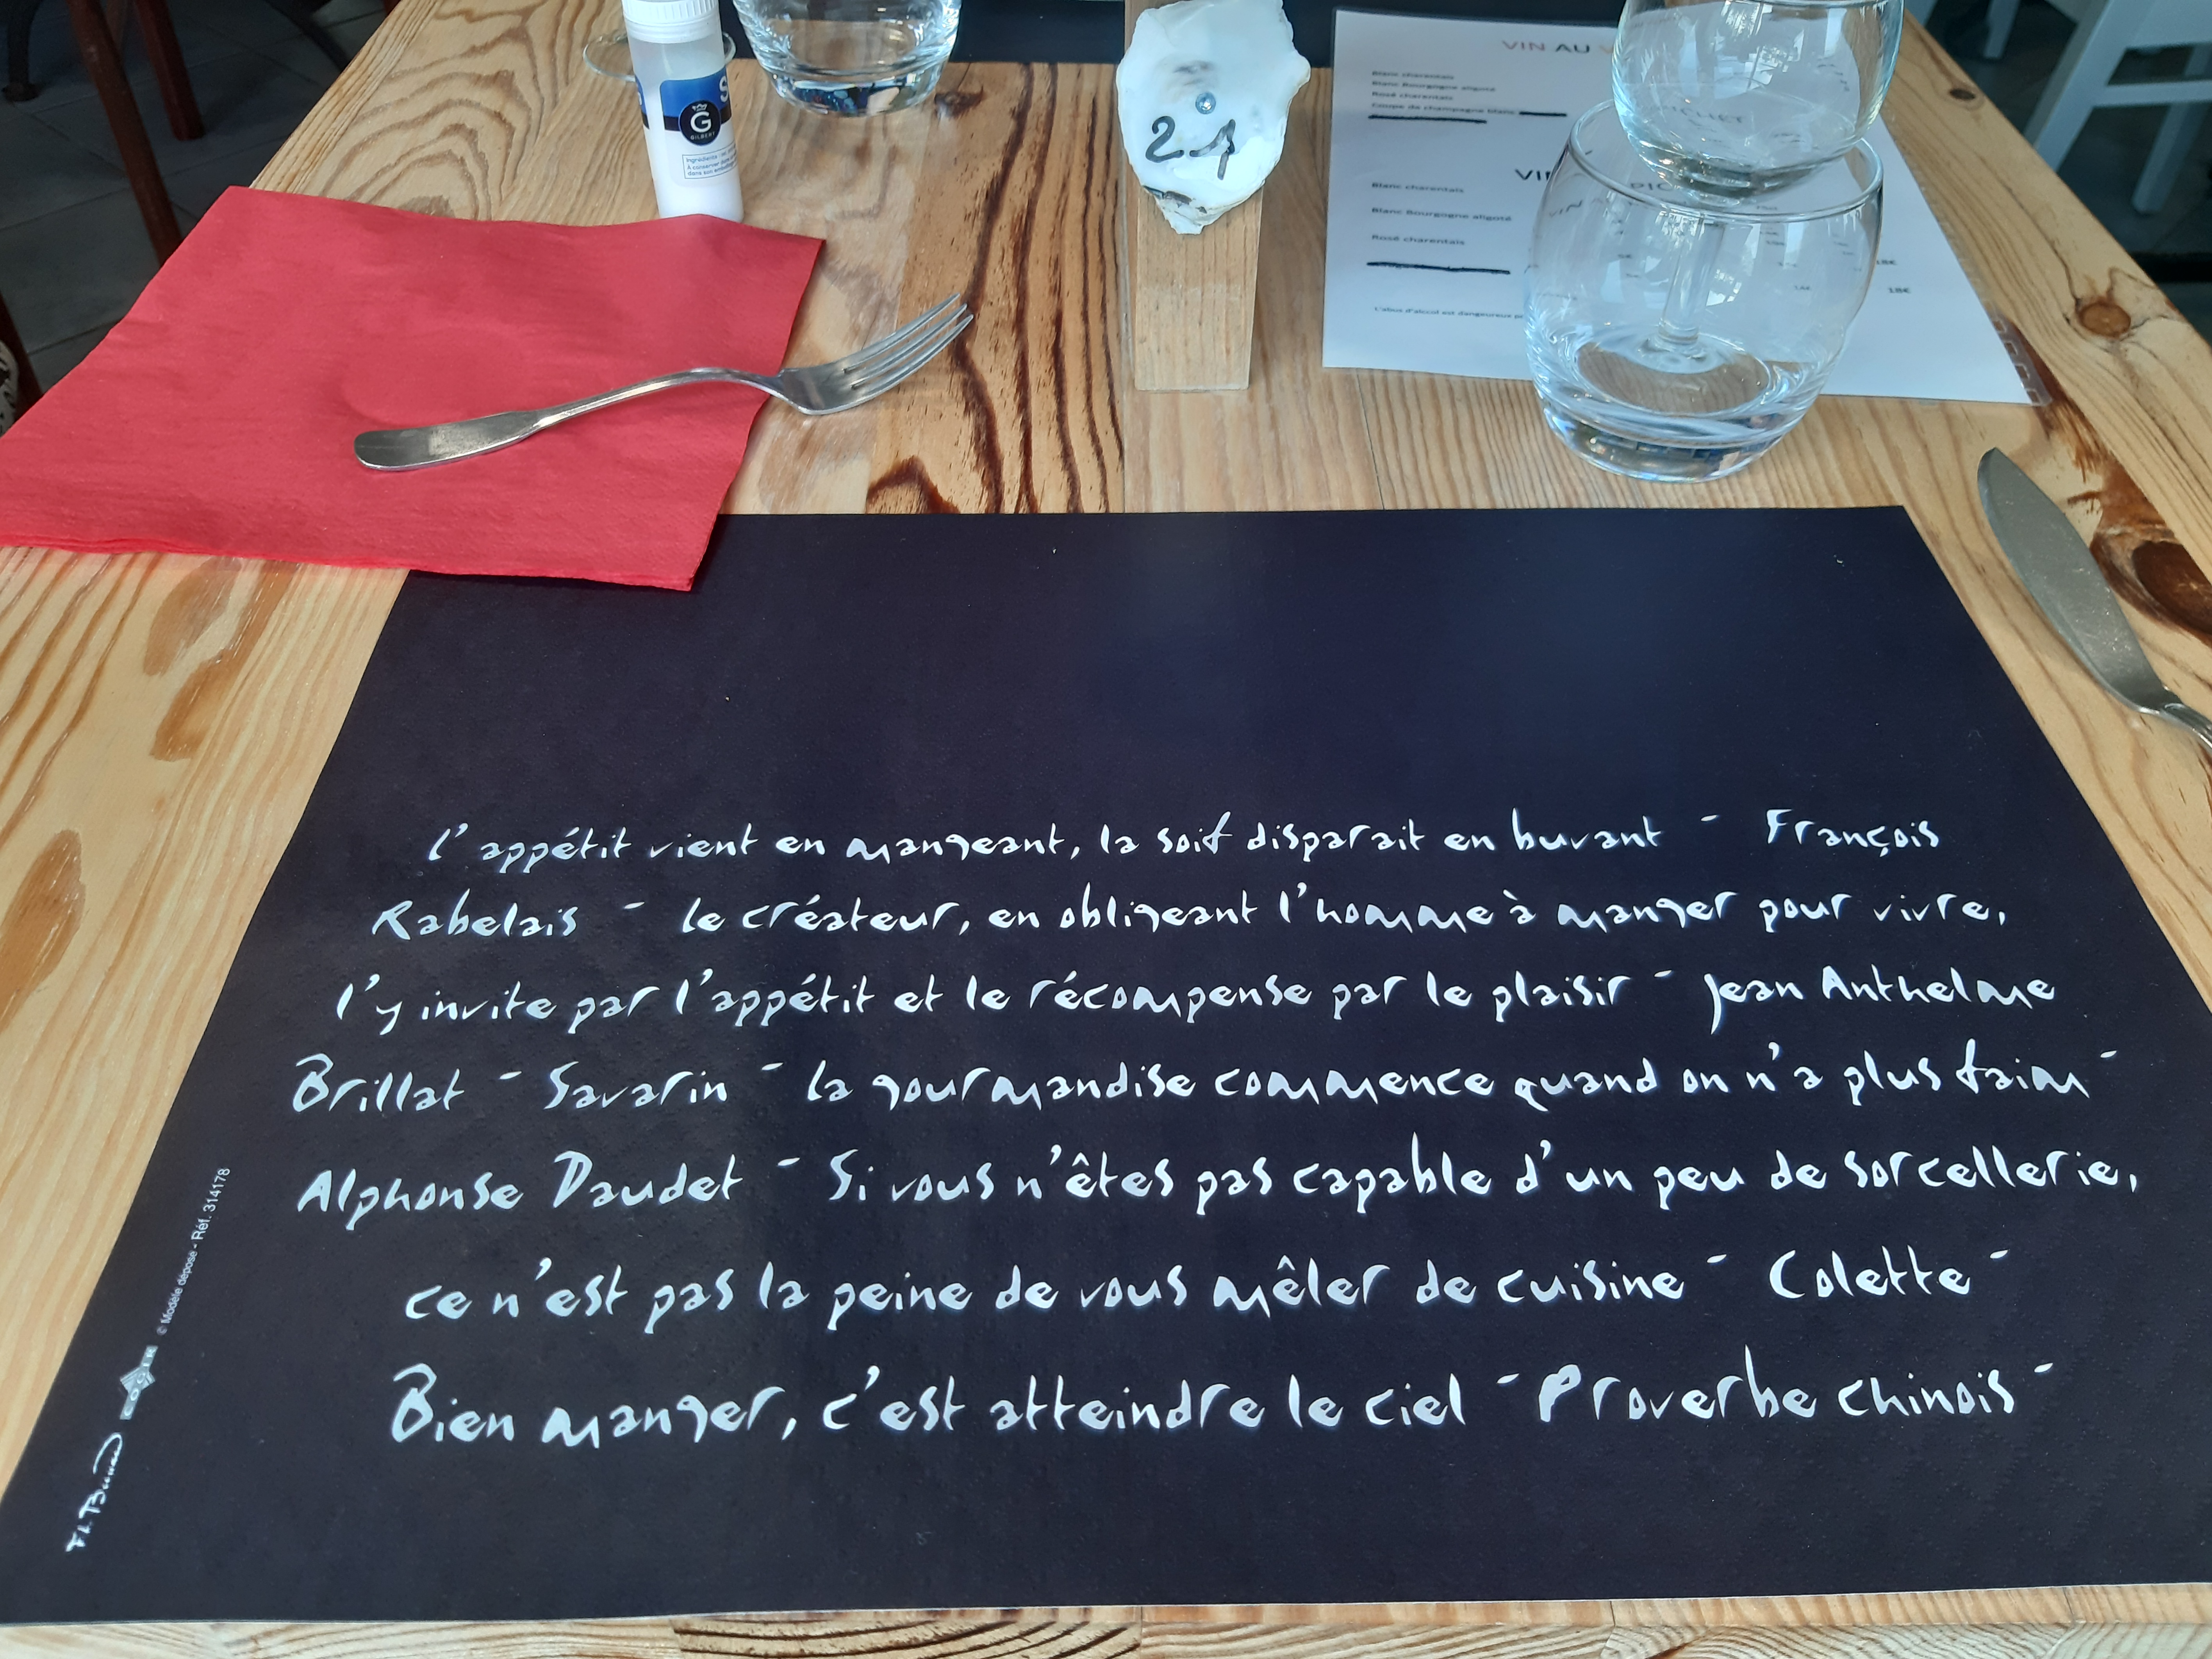 S
G
GILBERT
Ingrédients
À conserver dans
dans son
21
VIN AU
Blanc charentais
Blanc Bourgogne aligoté
Rosé charentais
Coupe de champagne blanc
Blanc charentais
Blanc Bourgogne aligoté
Rosé charentais
18€
18€
L'abus d'alcool est dangereux
l'appétit vient en mangeant, la soif disparait en buvant - François
Rabelais - le créateur, en obligeant l'homme à manger pour vivre,
l'y invite par l'appétit et le récompense par le plaisir - Jean Anthelme
Brillat - Savarin - la gourmandise commence quand on n'a plus faim -
Alphonse Daudet - Si vous n'êtes pas capable d'un peu de sorcellerie,
ce n'est pas la peine de vous mêler de cuisine - Colette -
Bien manger, c'est atteindre le ciel - Proverbe chinois -
© Modèle déposé - Réf. 314178